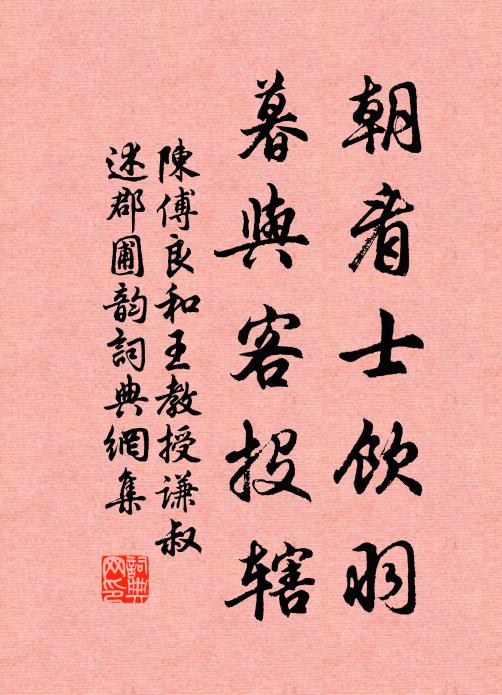 朝看士饮羽
暮與客投辖
陳傅良和王教授谦叔
述郡圃韵詞典網集
詞典
网印